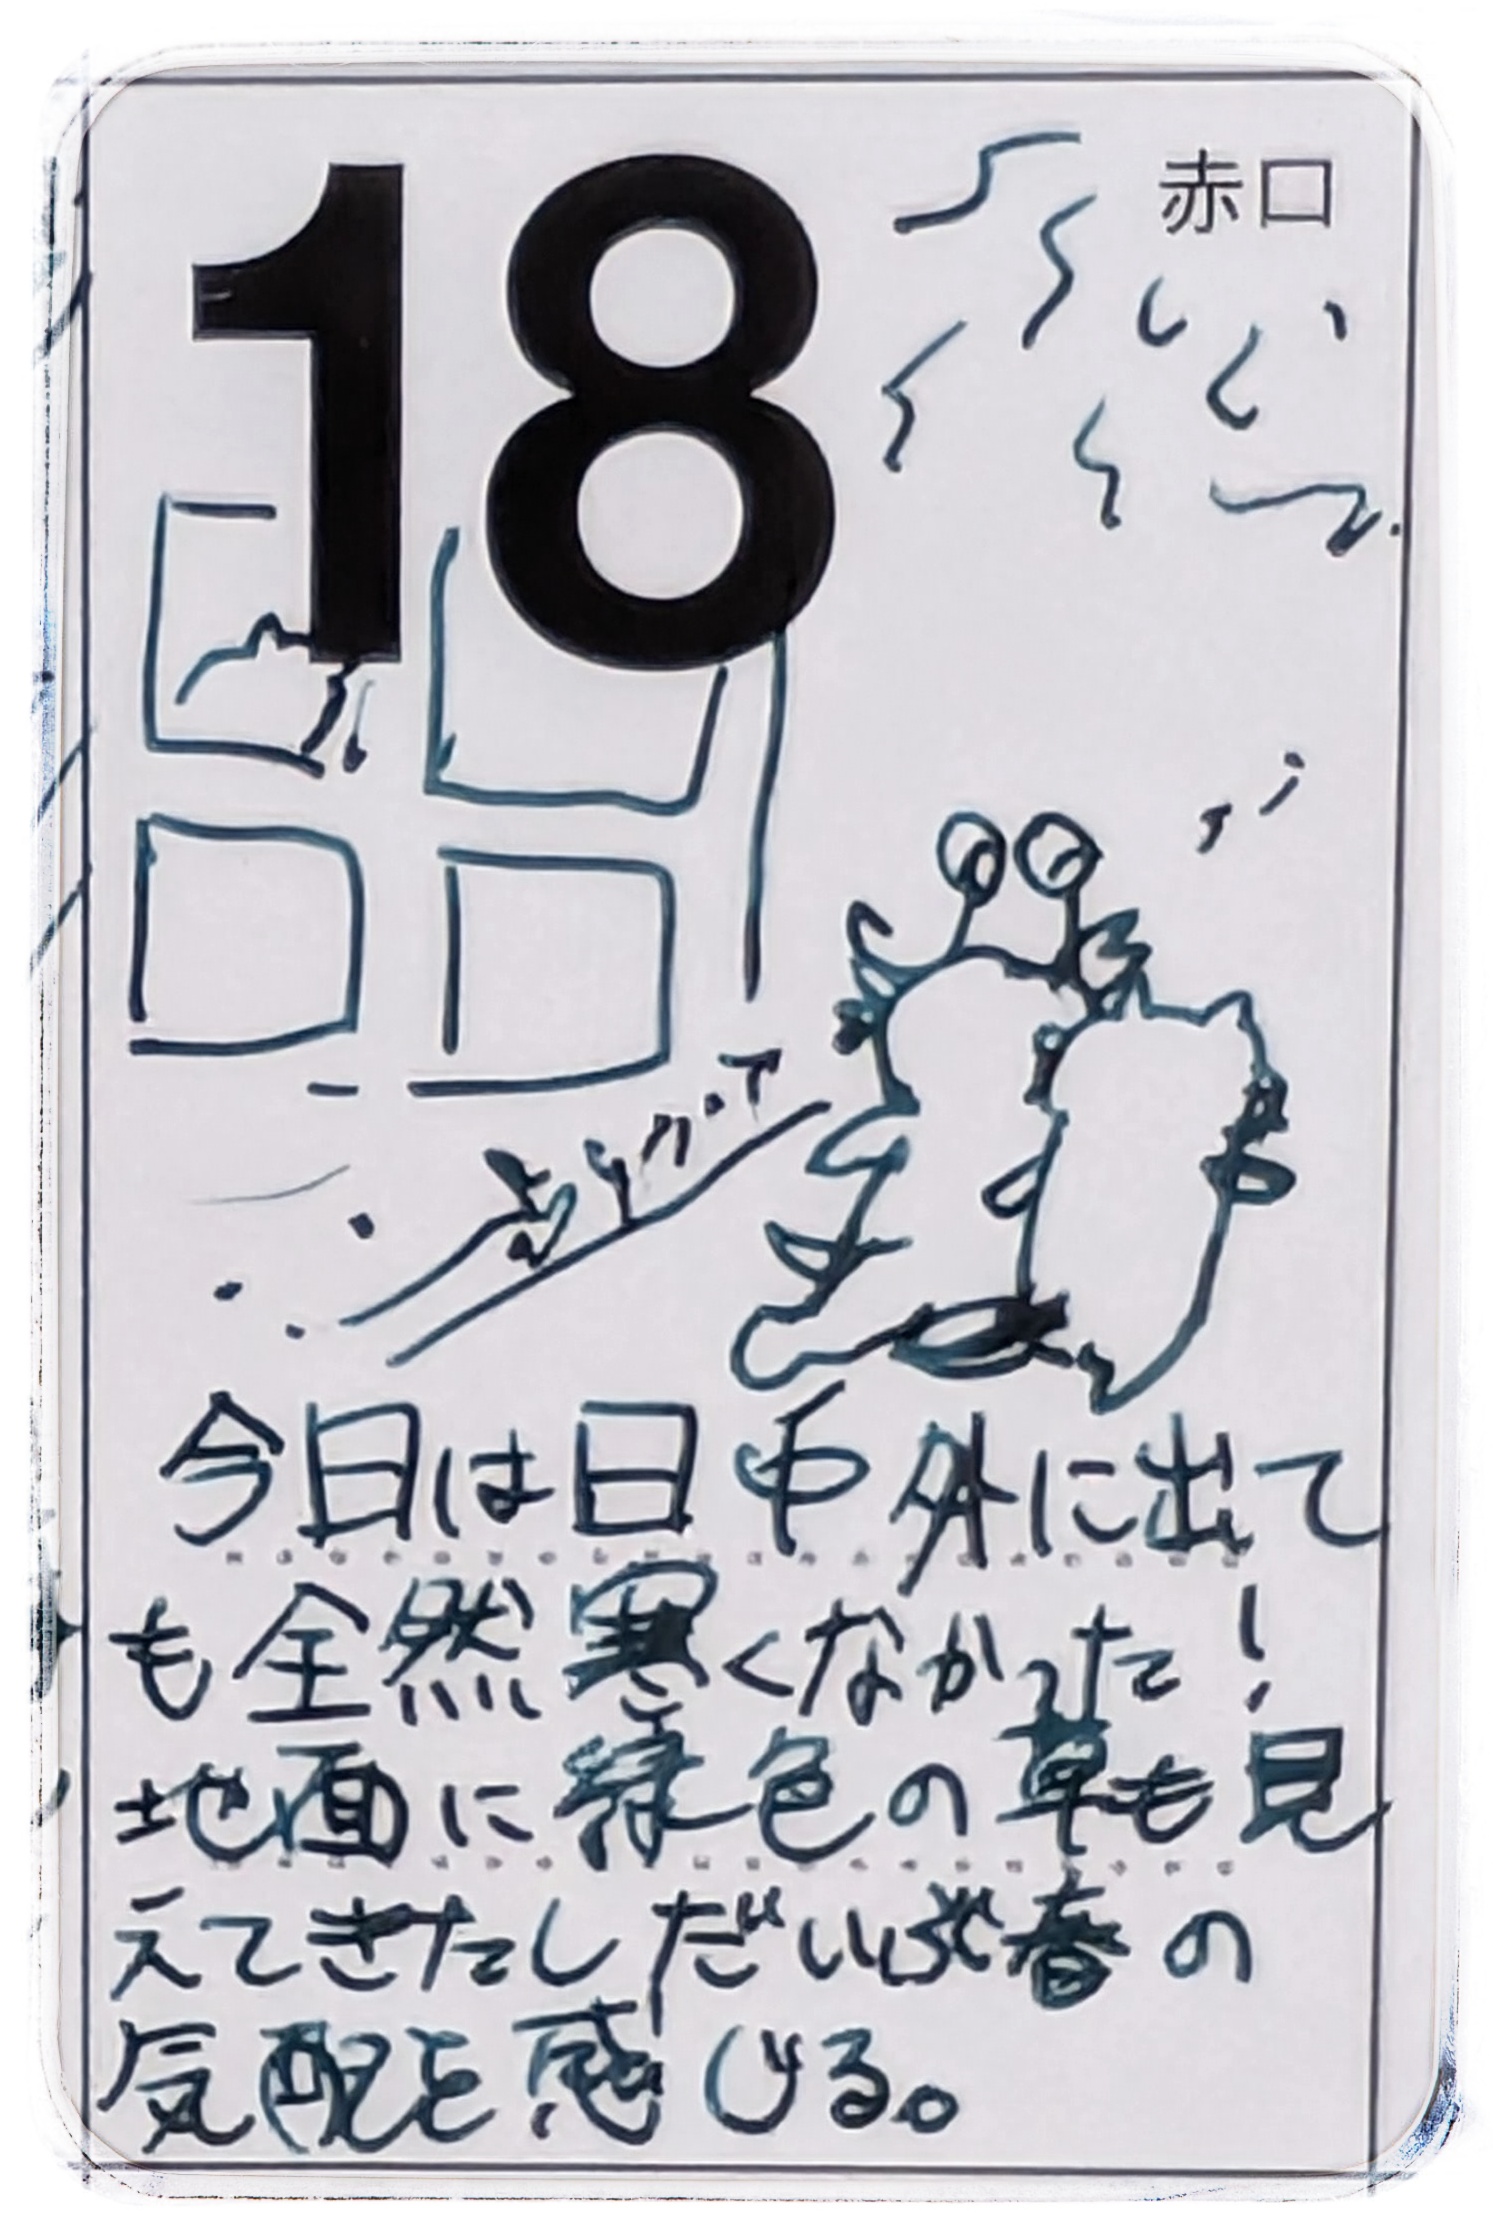 18
赤口
今日は日中外に出て
も全然寒くなかった!
地面に緑色の草も見
えてきたしだいぶ春の
気配を感じる。